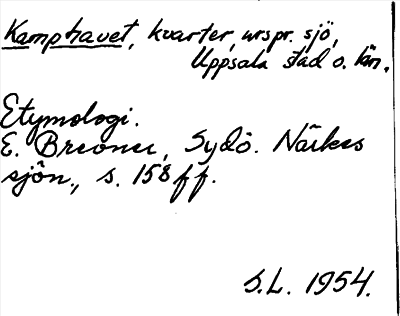 Kamphavet, kvarter, urspr. sjö,
Uppsala stad o. län.
Etymologi.
E. Brevner, Sydö. Närkes
sjön., s. 158 ff.
S.L. 1954.